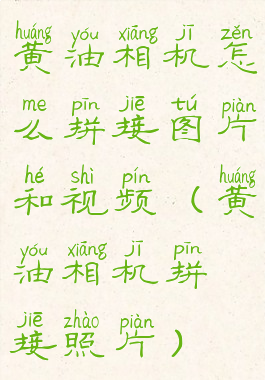 huáng yóu xiāng jī zěn
黄油相机怎
me pīn jiē tú piàn
么拼接图片
hé shì pín huáng
和视频（黄
yóu xiāng jī pīn
油相机拼
jiē zhào piàn
接照片）